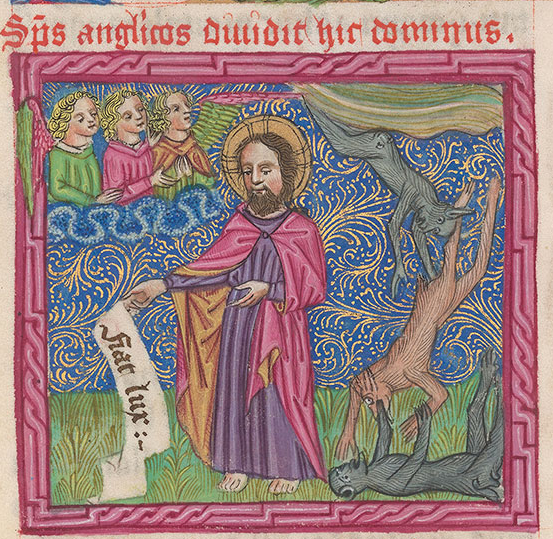 Sp̄s anglicos diuidit hic dominus.
fiat lux:~